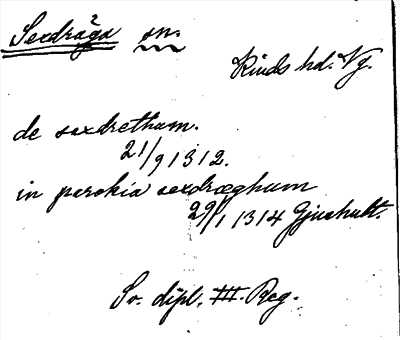 Sexdräga sn.
Kinds hd. Vg.
de sexdrethum.
21/9 1312.
in parokia sexdræghum
29/1 1314 Gjushult.
Sv. dipl. III. Reg.